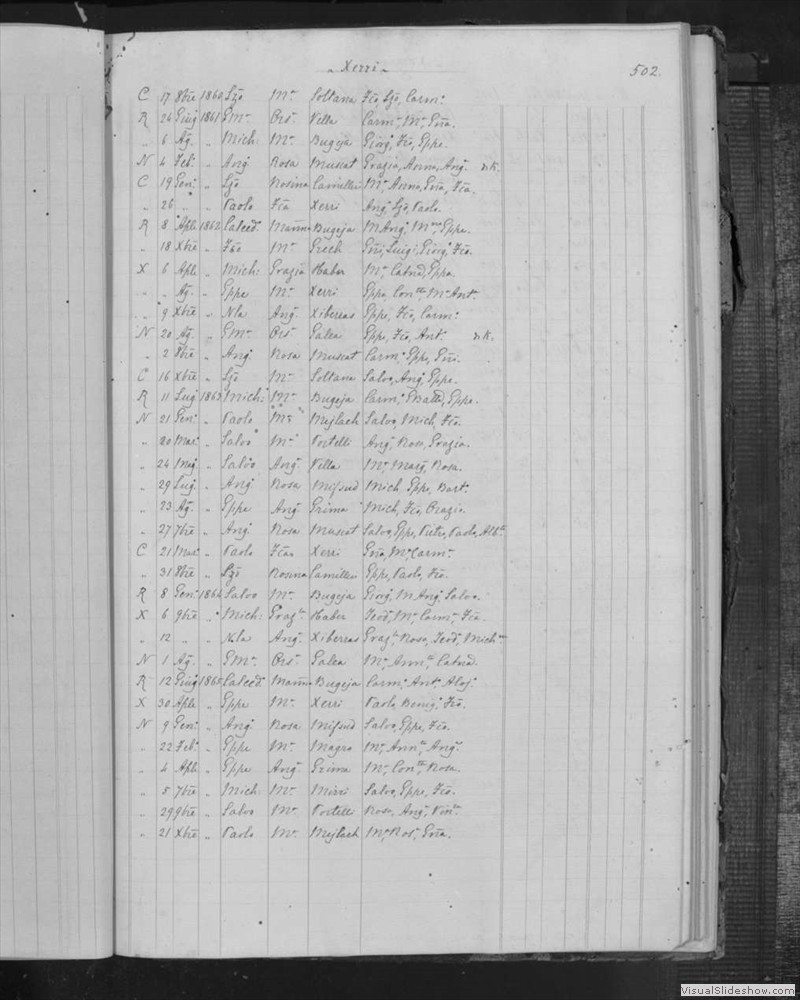 Xerri
502.
C 17 8bre 1860 Lzo Ma Soltana Fco Lzo, Carma
R 24 Giug 1861 GMa Ors: Vella Carma Ma Gna.
" 6 Ag. " Mich: Ma Bugeja Giorg, Fco, Gppe
N 4 Feb " Ang Rosa Muscat Grazia, Anna, Ang. n.K.
C 19 Gen: " Lzo Rosina Camilleri Ma, Anna, Gna, Fca.
" 26 " " Paolo Fca Xerri Ang, Lzo, Paolo.
R 8 Aple 1862 Calced. Marna Bugeja M Ang, Ma, Gppe.
" 18 Xbre " Fco Ma Grech Gni, Luigi, Giorg, Fco.
X 6 Aple " Mich: Grazia Haber Ma, Catnd, Gppe.
" " Ag. " Gppe Ma Xerri Gppa, Conta, Ma Ant.
" 9 Xbre " Nla Ang. Xiberras Gppe, Fco, Carm:
N 20 Ag. " GMa Ors: Galea Gppe, Fco, Ant. n.K.
" 2 8bre " Ang Rosa Muscat Carma, Gppe, Gni.
C 16 Xbre " Lzo Ma Soltana Salvo, Ang, Gppe.
R 11 Lug 1863 Mich: Ma Bugeja Carma, GBatta, Gppe.
N 21 Gen: " Paolo Ma Mejlach Salvo, Mich, Fco.
" 20 Mar: " Salvo Ma Portelli Ang, Rosa, Grazia.
" 24 Mag. " Salvo Ang. Vella Ma, Marg, Rosa.
" 29 Lug. " Ang Rosa Mifsud Mich, Gppe, Bart.
" 23 Ag. " Gppe Ang Grima Mich, Fco, Orazio
" 27 7bre " Ang Rosa Muscat Salvo, Gppe, Pietro, Paolo, Albta
C 21 Mar: " Paolo Fca Xerri Gna, Ma, Carma
" 31 8bre " Lzo Rosina Camilleri Gppe, Paolo, Fco.
R 8 Gen: 1864 Salvo Ma Bugeja Giorg, M Ang, Salvo.
X 6 9bre " Mich: Graza Haber Teod, Ma, Carma, Fca.
" 12 " " Nla Ang. Xiberras Graza, Rosa, Teod, Micha
N 1 Ag. " GMa Ors: Galea Ma, Anna, Catnd.
R 12 Giug 1865 Calced. Marna Bugeja Carma, Ant, Aloj.
X 30 Aple " Gppe Ma Xerri Paolo, Benig, Fco.
N 9 Gen: " Ang Rosa Mifsud Salvo, Gppe, Fco.
" 22 Feb: " Gppe Ma Magro Ma, Anna, Ang.
" 4 Aple " Gppe Ang. Grima Ma, Conta, Rosa.
" 5 7bre " Mich: Ma Mizzi Salvo, Gppe, Fco.
" 29 9bre " Salvo Ma Portelli Rosa, Ang,
" 21 Xbre " Paolo Ma Mejlach Ma, Ros, Gna.
VisualSlideshow.com